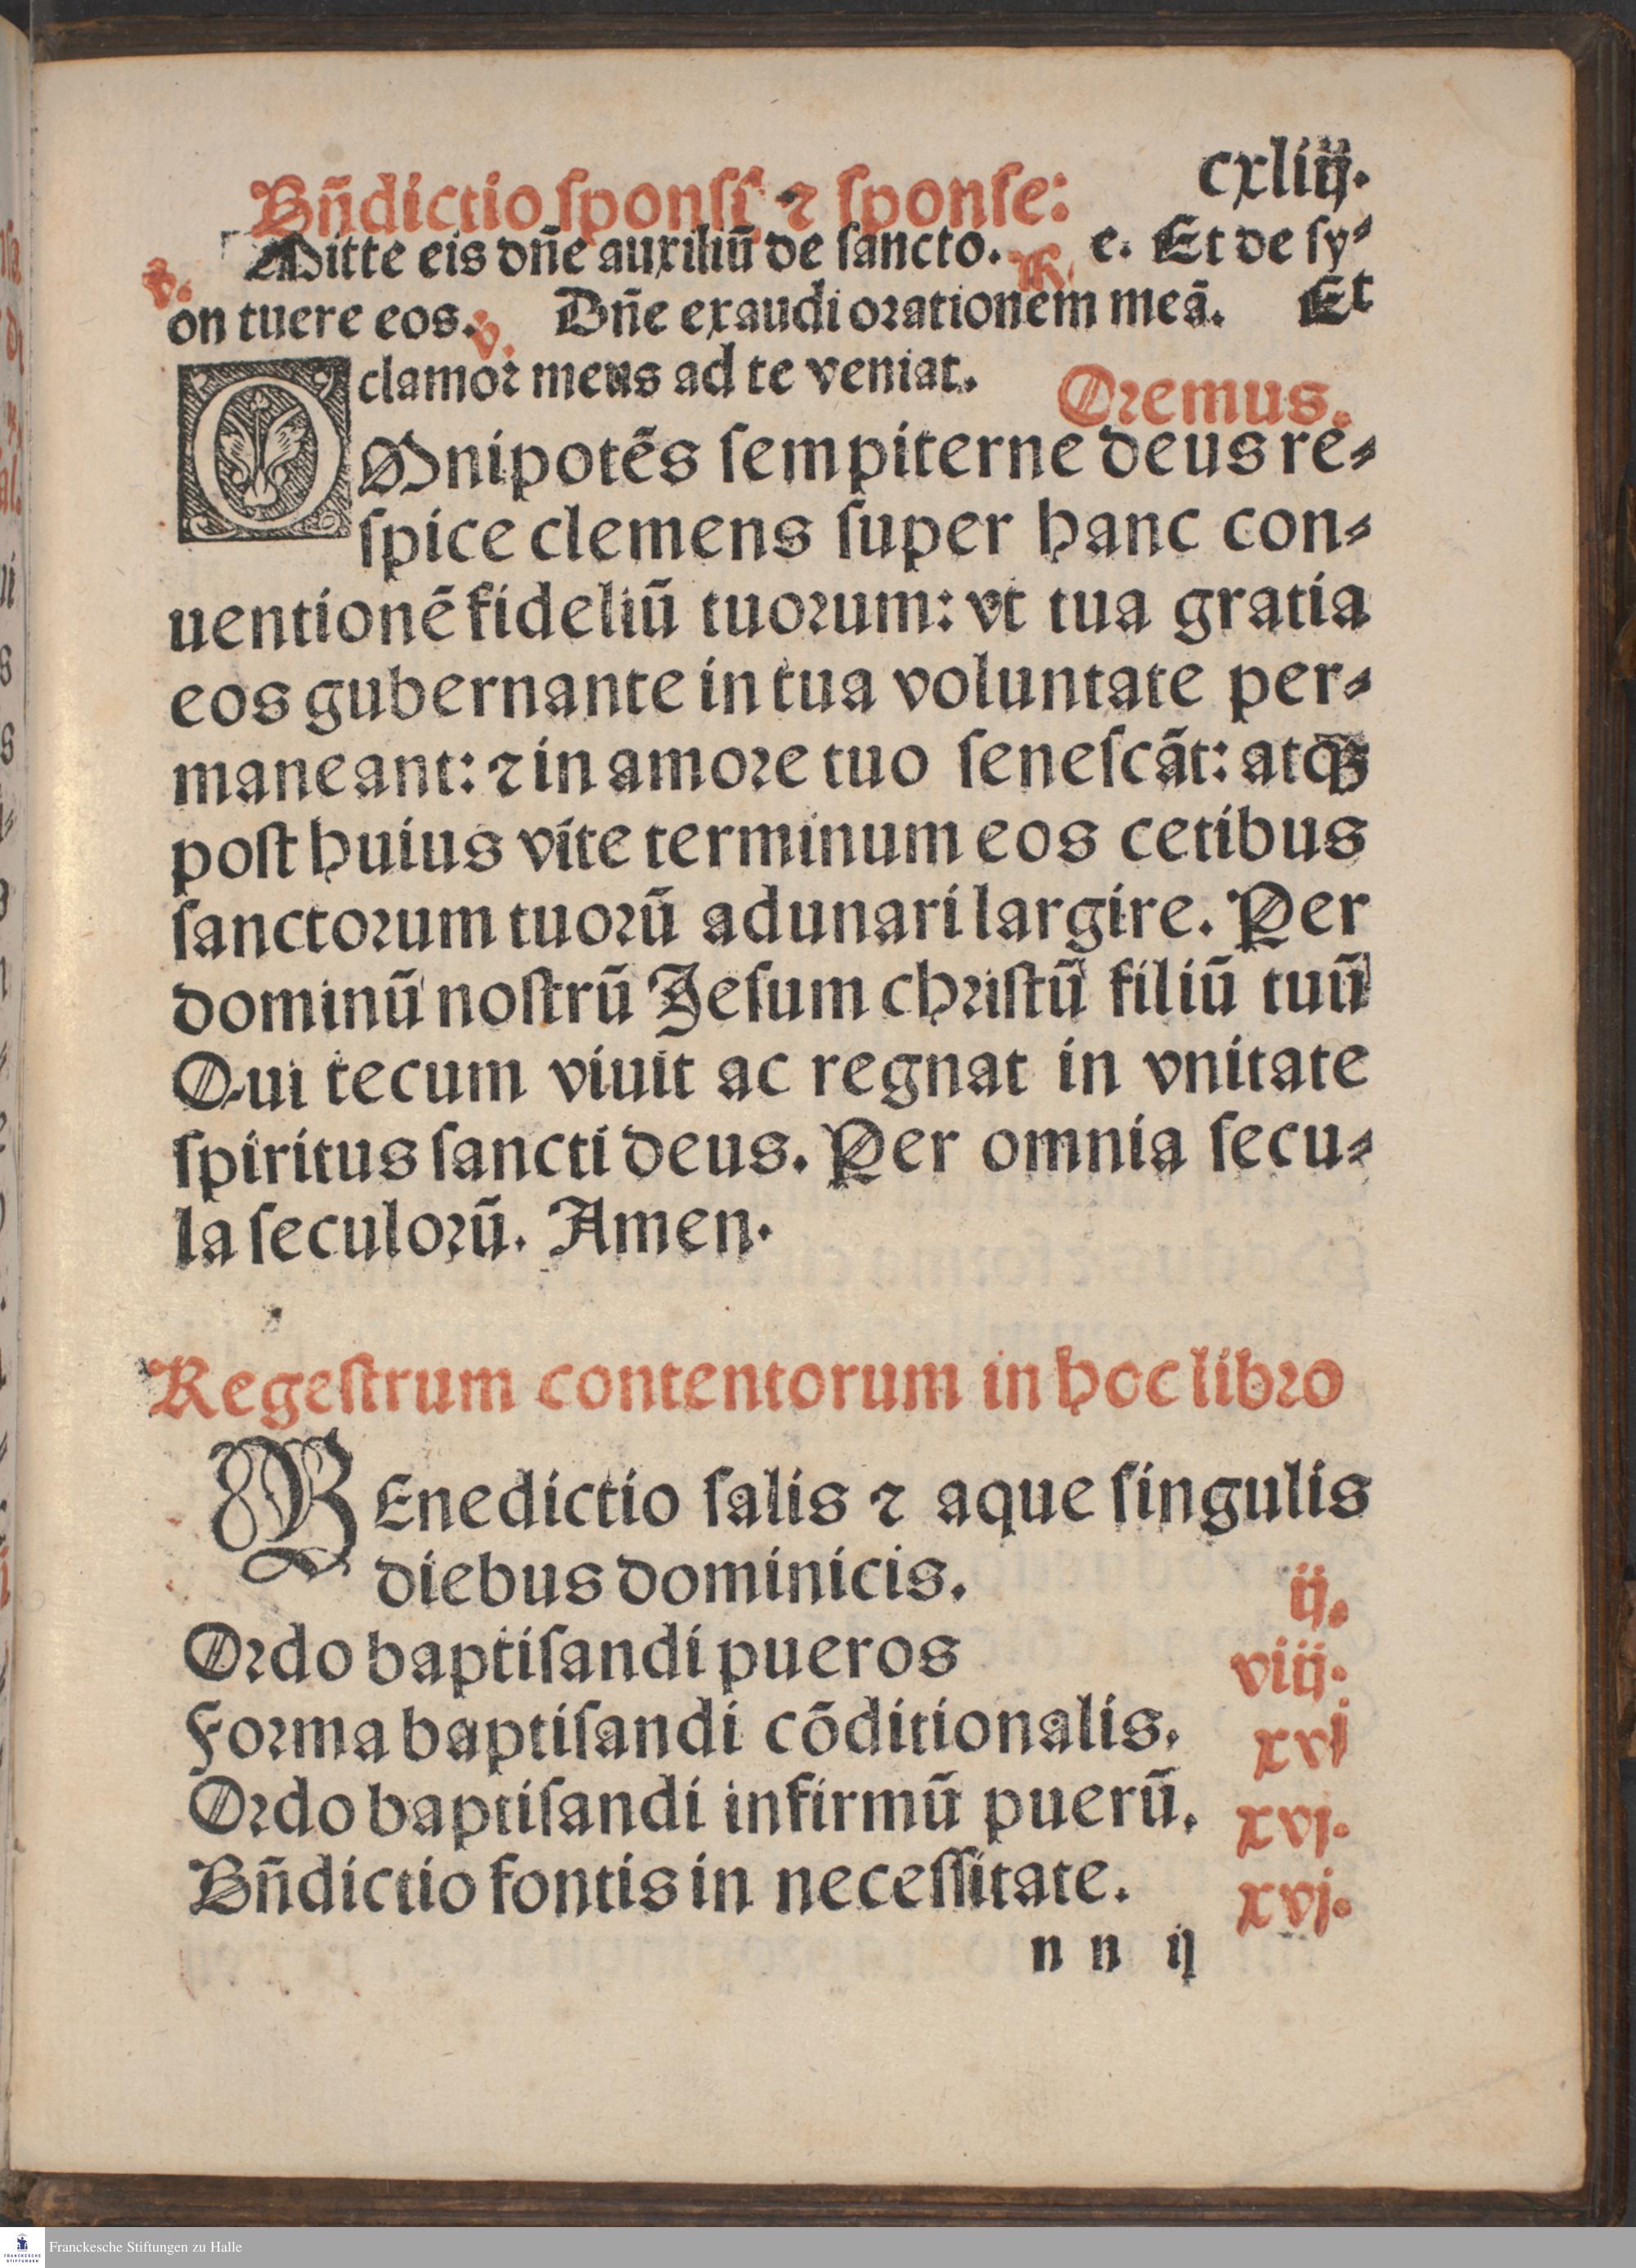 cxliij.
Bñdictio ſponſi ⁊ ſponſe:
Mitte eis dñe auxiliū de ſancto. ℟. e. Et de ſy⸗
℣. on tuere eos. ℣. Dñe exaudi orationem meā. Et
clamor meus ad te veniat. Oremus.
OMnipotēs ſempiterne deus re⸗
ſpice clemens ſuper hanc con⸗
uentionē fideliū tuorum: vt tua gratia
eos gubernante in tua voluntate per⸗
maneant: ⁊ in amore tuo ſeneſcāt: atqꝫ
poſt huius vite terminum eos cetibus
ſanctorum tuorū adunari largire. Per
dominū noſtrū Jeſum chriſtū filiū tuū
Qui tecum viuit ac regnat in vnitate
ſpiritus ſancti deus. Per omnia ſecu⸗
la ſeculorū. Amen.
Regeſtrum contentorum in hoc libro
BEnedictio ſalis ⁊ aque ſingulis
diebus dominicis. ij.
Ordo baptiſandi pueros viij.
Forma baptiſandi cōditionalis. xvj
Ordo baptiſandi infirmū puerū. xvj.
Bñdictio fontis in neceſſitate. xvj.
n n ij
Franckesche Stiftungen zu Halle